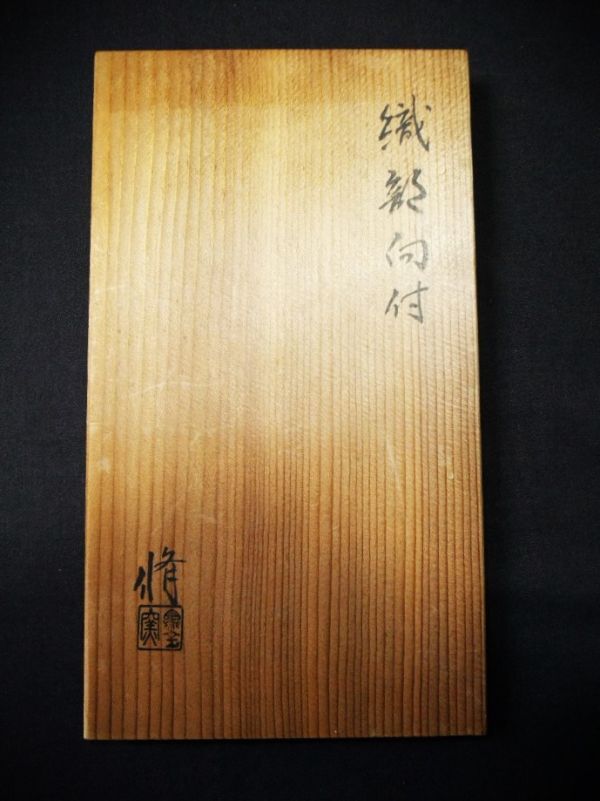 織部向付
脩